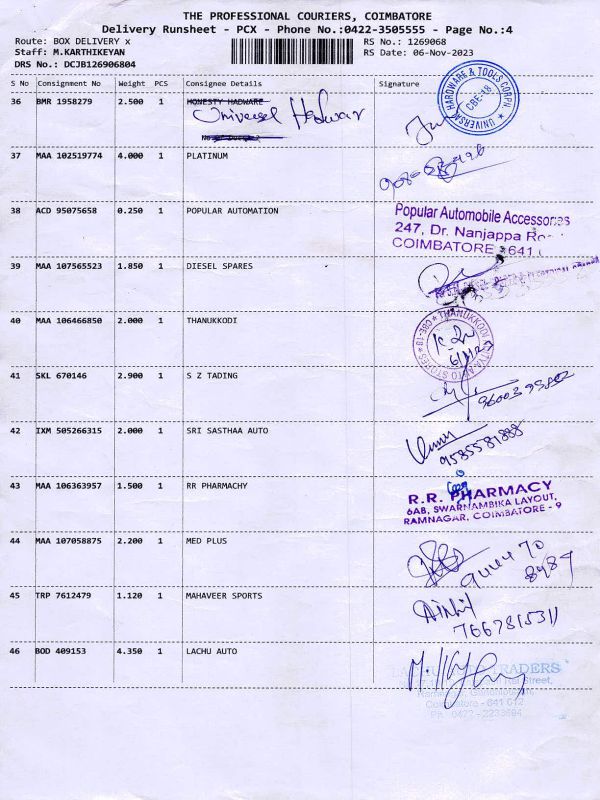 THE PROFESSIONAL COURIERS, COIMBATORE
Delivery Runsheet - PCX - Phone No.:0422-3505555 - Page No.:4
Route: BOX DELIVERY x RS No.: 1269068
Staff: M.KARTHIKEYAN RS Date: 06-Nov-2023
DRS No.: DCJB126906804
S No Consignment No Weight PCS Consignee Details Signature
36 BMR 1958279 2.500 1 HONESTY HADWARE
Universel Hadwar
UNIVERSAL HARDWARE & TOOLS CORPN. CBE-18
37 MAA 102519774 4.000 1 PLATINUM
38 ACD 95075658 0.250 1 POPULAR AUTOMATION
Popular Automobile Accessories
247, Dr. Nanjappa Ro
COIMBATORE 641
39 MAA 107565523 1.850 1 DIESEL SPARES
40 MAA 106466850 2.000 1 THANUKKODI
THANUKKODI AUTO STORES CBE-18
41 SKL 670146 2.900 1 S Z TADING
42 IXM 505266315 2.000 1 SRI SASTHAA AUTO
9585581888
43 MAA 106363957 1.500 1 RR PHARMACHY
R.R. PHARMACY
6AB, SWARNAMBIKA LAYOUT,
RAMNAGAR, COIMBATORE - 9
44 MAA 107058875 2.200 1 MED PLUS
45 TRP 7612479 1.120 1 MAHAVEER SPORTS
7667815311
46 BOD 409153 4.350 1 LACHU AUTO
TRADERS
Street,
Coimbatore - 641 012
Ph: 0422 - 2233594